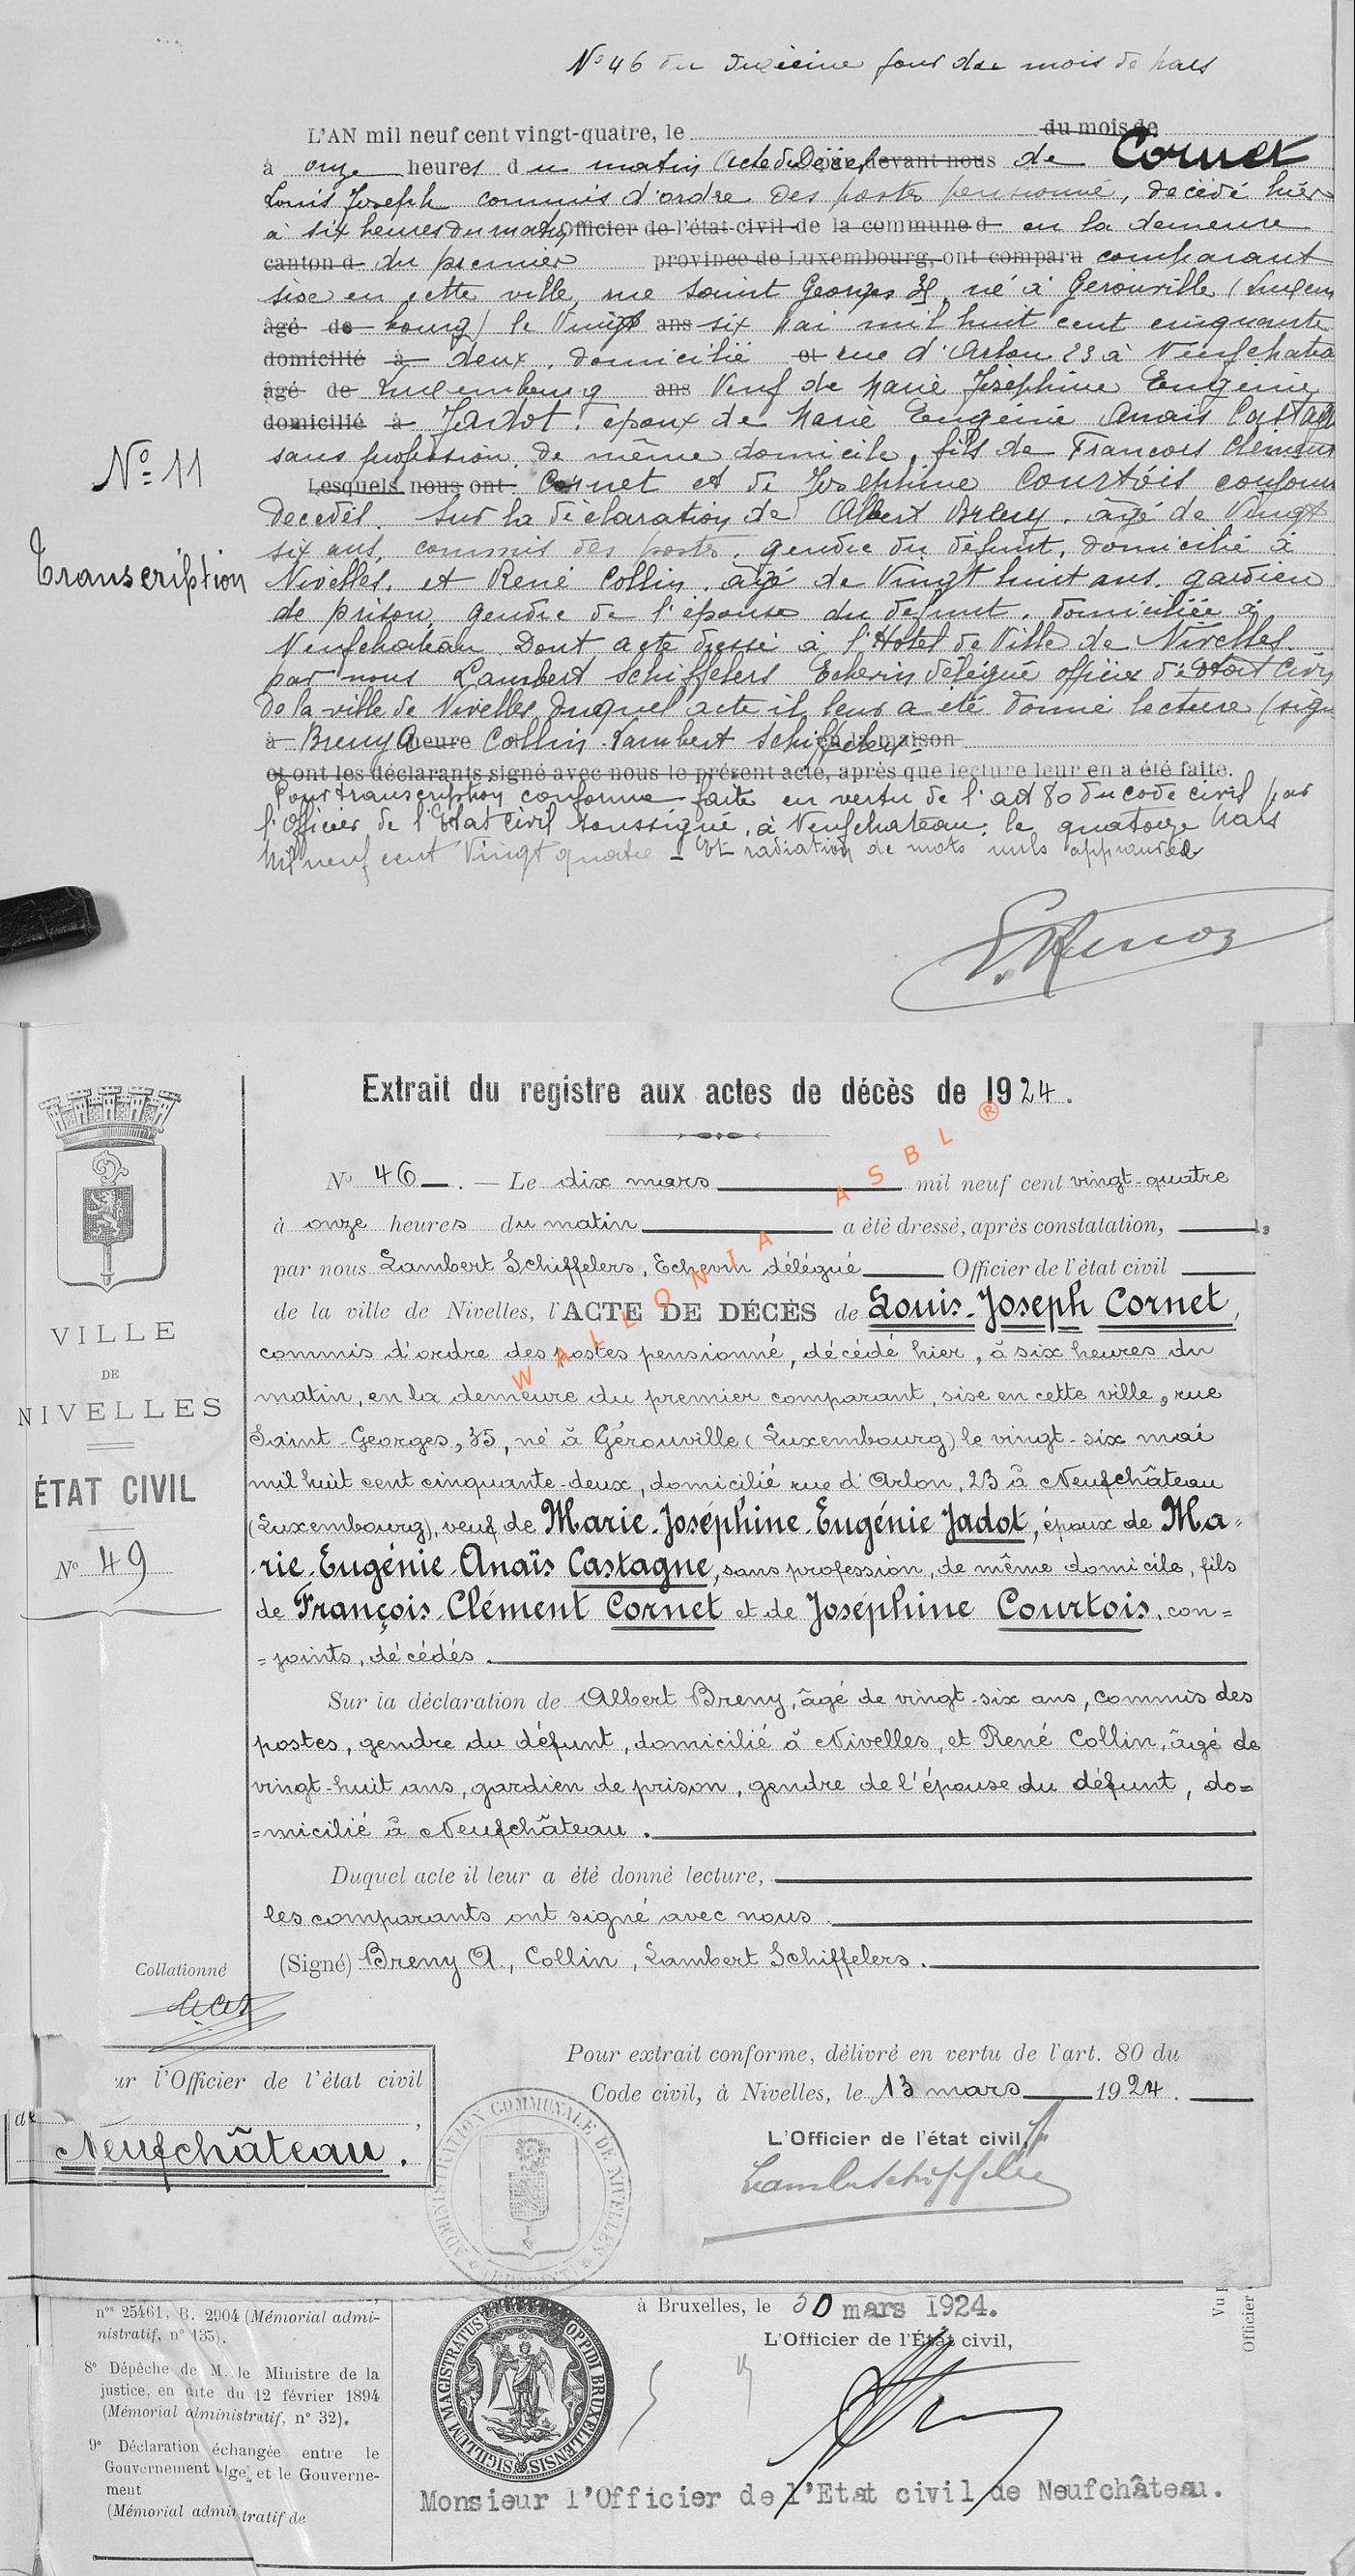 N° 46 du dixième jour du mois de Mars
L'AN mil neuf cent vingt-quatre, le du mois de
à onze heures du matin Acte de Décès par devant nous de Cornet
Louis Joseph commis d'ordre des postes pensionné, décédé hier
à six heures du matin Officier de l'état civil de la commune d en la demeure
canton d du premier province de Luxembourg, ont comparu comparant
sise en cette ville, rue Saint Georges 35, né à Gerouville (Luxem
âgé de bourg) le Vingt ans six Mai mil huit cent cinquante
domicilié à deux, domicilié et rue d'Arlon 23 à Neufchatea
âgé de Luxembourg ans Veuf de Marie Joséphine Eugénie
domicilié à Jadot, époux de Marie Eugénie Anaïs Castagn
sans profession, de même domicile, fils de François Clément
N° 11
Lesquels nous ont Cornet et de Joséphine Courtois conjoin
décédés. Sur la déclaration de Albert Breny, âgé de Vingt
six ans, commis des postes, gendre du défunt, domicilié à
Transcription
Nivelles, et René Collin, âgé de Vingt huit ans, gardien
de prison, gendre de l'épouse du défunt, domiciliée à
Neufchateau Dont acte dressé à l'Hôtel de Ville de Nivelles
par nous Lambert Schiffelers Echevin délégué officier d'état civil
de la ville de Nivelles duquel acte il leur a été donné lecture (sign
à Breny A heure Collin Lambert Schiffelers en la maison
et ont les déclarants signé avec nous le présent acte, après que lecture leur en a été faite.
Pour transcription conforme faite en vertu de l'art 80 du code civil par
l'Officier de l'Etat Civil soussigné, à Neufchateau, le quatorze Mars
Mil neuf cent Vingt quatre - Et radiation de mots nuls approuvée
Extrait du registre aux actes de décès de 1924.
WALLONIA ASBL ®
N° 46 . — Le dix mars mil neuf cent vingt-quatre
à onze heures du matin a été dressé, après constatation,
par nous Lambert Schiffelers, Echevin délégué Officier de l'état civil
de la ville de Nivelles, l'ACTE DE DÉCÈS de Louis-Joseph Cornet,
commis d'ordre des postes pensionné, décédé hier, à six heures du
matin, en la demeure du premier comparant, sise en cette ville, rue
Saint-Georges, 35, né à Gérouville (Luxembourg) le vingt-six mai
mil huit cent cinquante-deux, domicilié rue d'Arlon, 23 à Neufchâteau
(Luxembourg), veuf de Marie-Joséphine-Eugénie Jadot, époux de Ma-
rie-Eugénie-Anaïs Castagne, sans profession, de même domicile, fils
de François-Clément Cornet et de Joséphine Courtois, con=
=joints, décédés.
VILLE
DE
NIVELLES
ÉTAT CIVIL
N° 49
Sur la déclaration de Albert Breny, âgé de vingt-six ans, commis des
postes, gendre du défunt, domicilié à Nivelles, et René Collin, âgé de
vingt-huit ans, gardien de prison, gendre de l'épouse du défunt, do=
=micilié à Neufchâteau.
Duquel acte il leur a été donné lecture,
les comparants ont signé avec nous.
(Signé) Breny A., Collin, Lambert Schiffelers.
Collationné
Pour extrait conforme, délivré en vertu de l'art. 80 du
Code civil, à Nivelles, le 13 mars 1924.
L'Officier de l'état civil,
ur l'Officier de l'état civil
de
Neufchâteau.
ADMINISTRATION COMMUNALE DE NIVELLES
nos 25461, B. 2904 (Mémorial admi-
nistratif, n° 135).
8° Dépêche de M. le Ministre de la
justice, en date du 12 février 1894
(Mémorial administratif, n° 32).
9° Déclaration échangée entre le
Gouvernement lge et le Gouverne-
ment
(Mémorial admi tratif de
à Bruxelles, le 30 mars 1924.
L'Officier de l'État civil,
SIGILLUM MAGISTRATUS OPPIDI BRUXELLENSIS
Monsieur l'Officier de l'Etat civil de Neufchâteau.
Vu
Officier